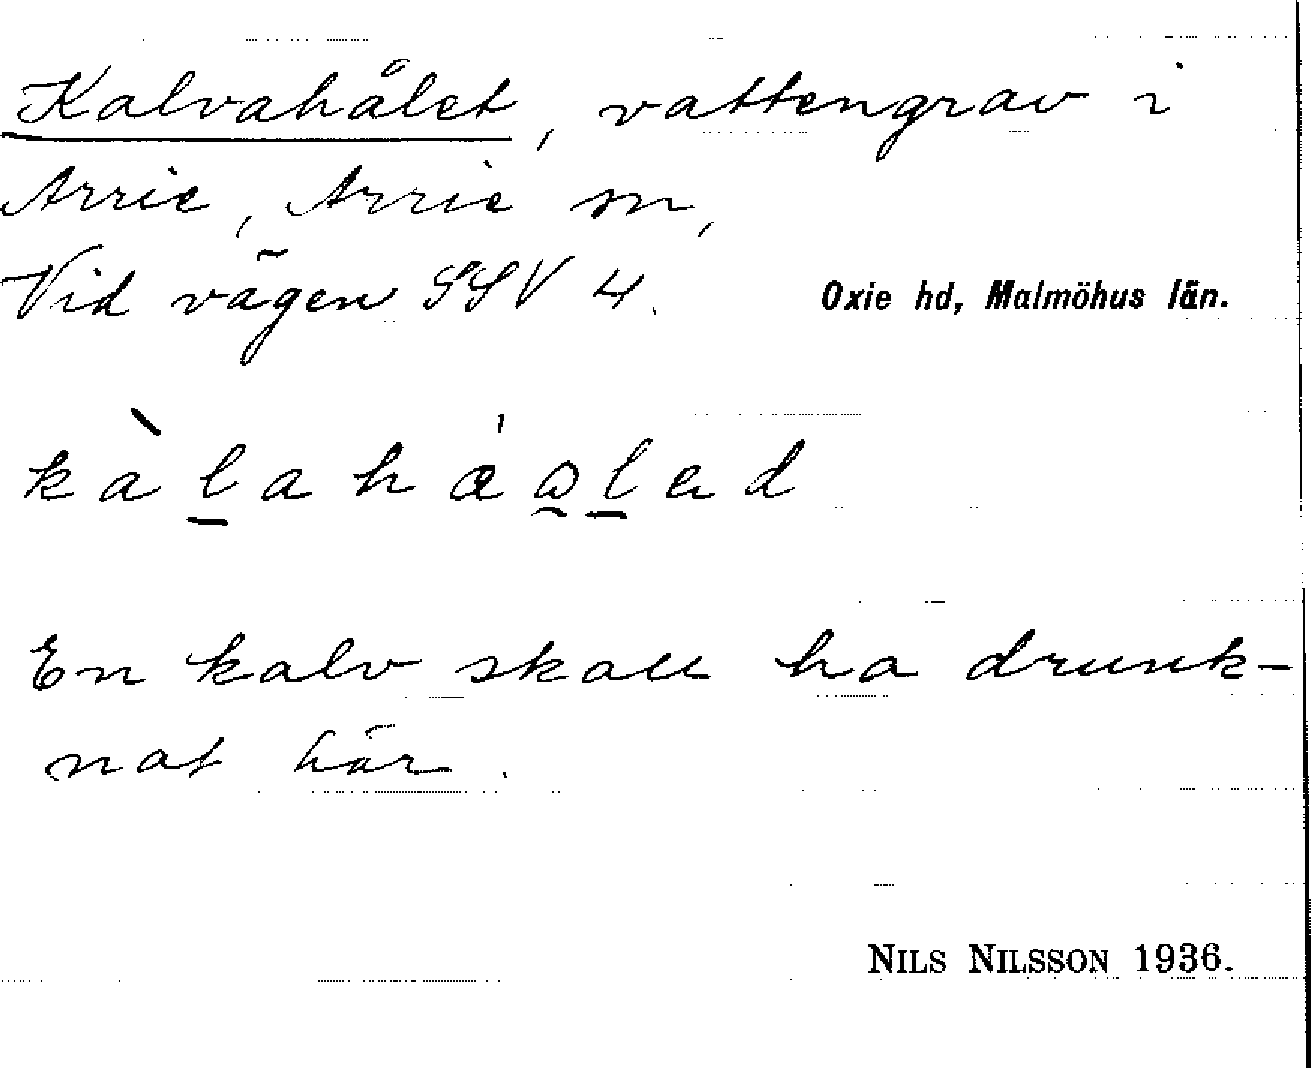 Kalvahålet, vattengrav i
Arrie, Arrie sn,
Vid vägen SSV 4. Oxie hd, Malmöhus län.
kàlahǽɷled
En kalv skall ha drunk-
nat här.
NILS NILSSON 1936.